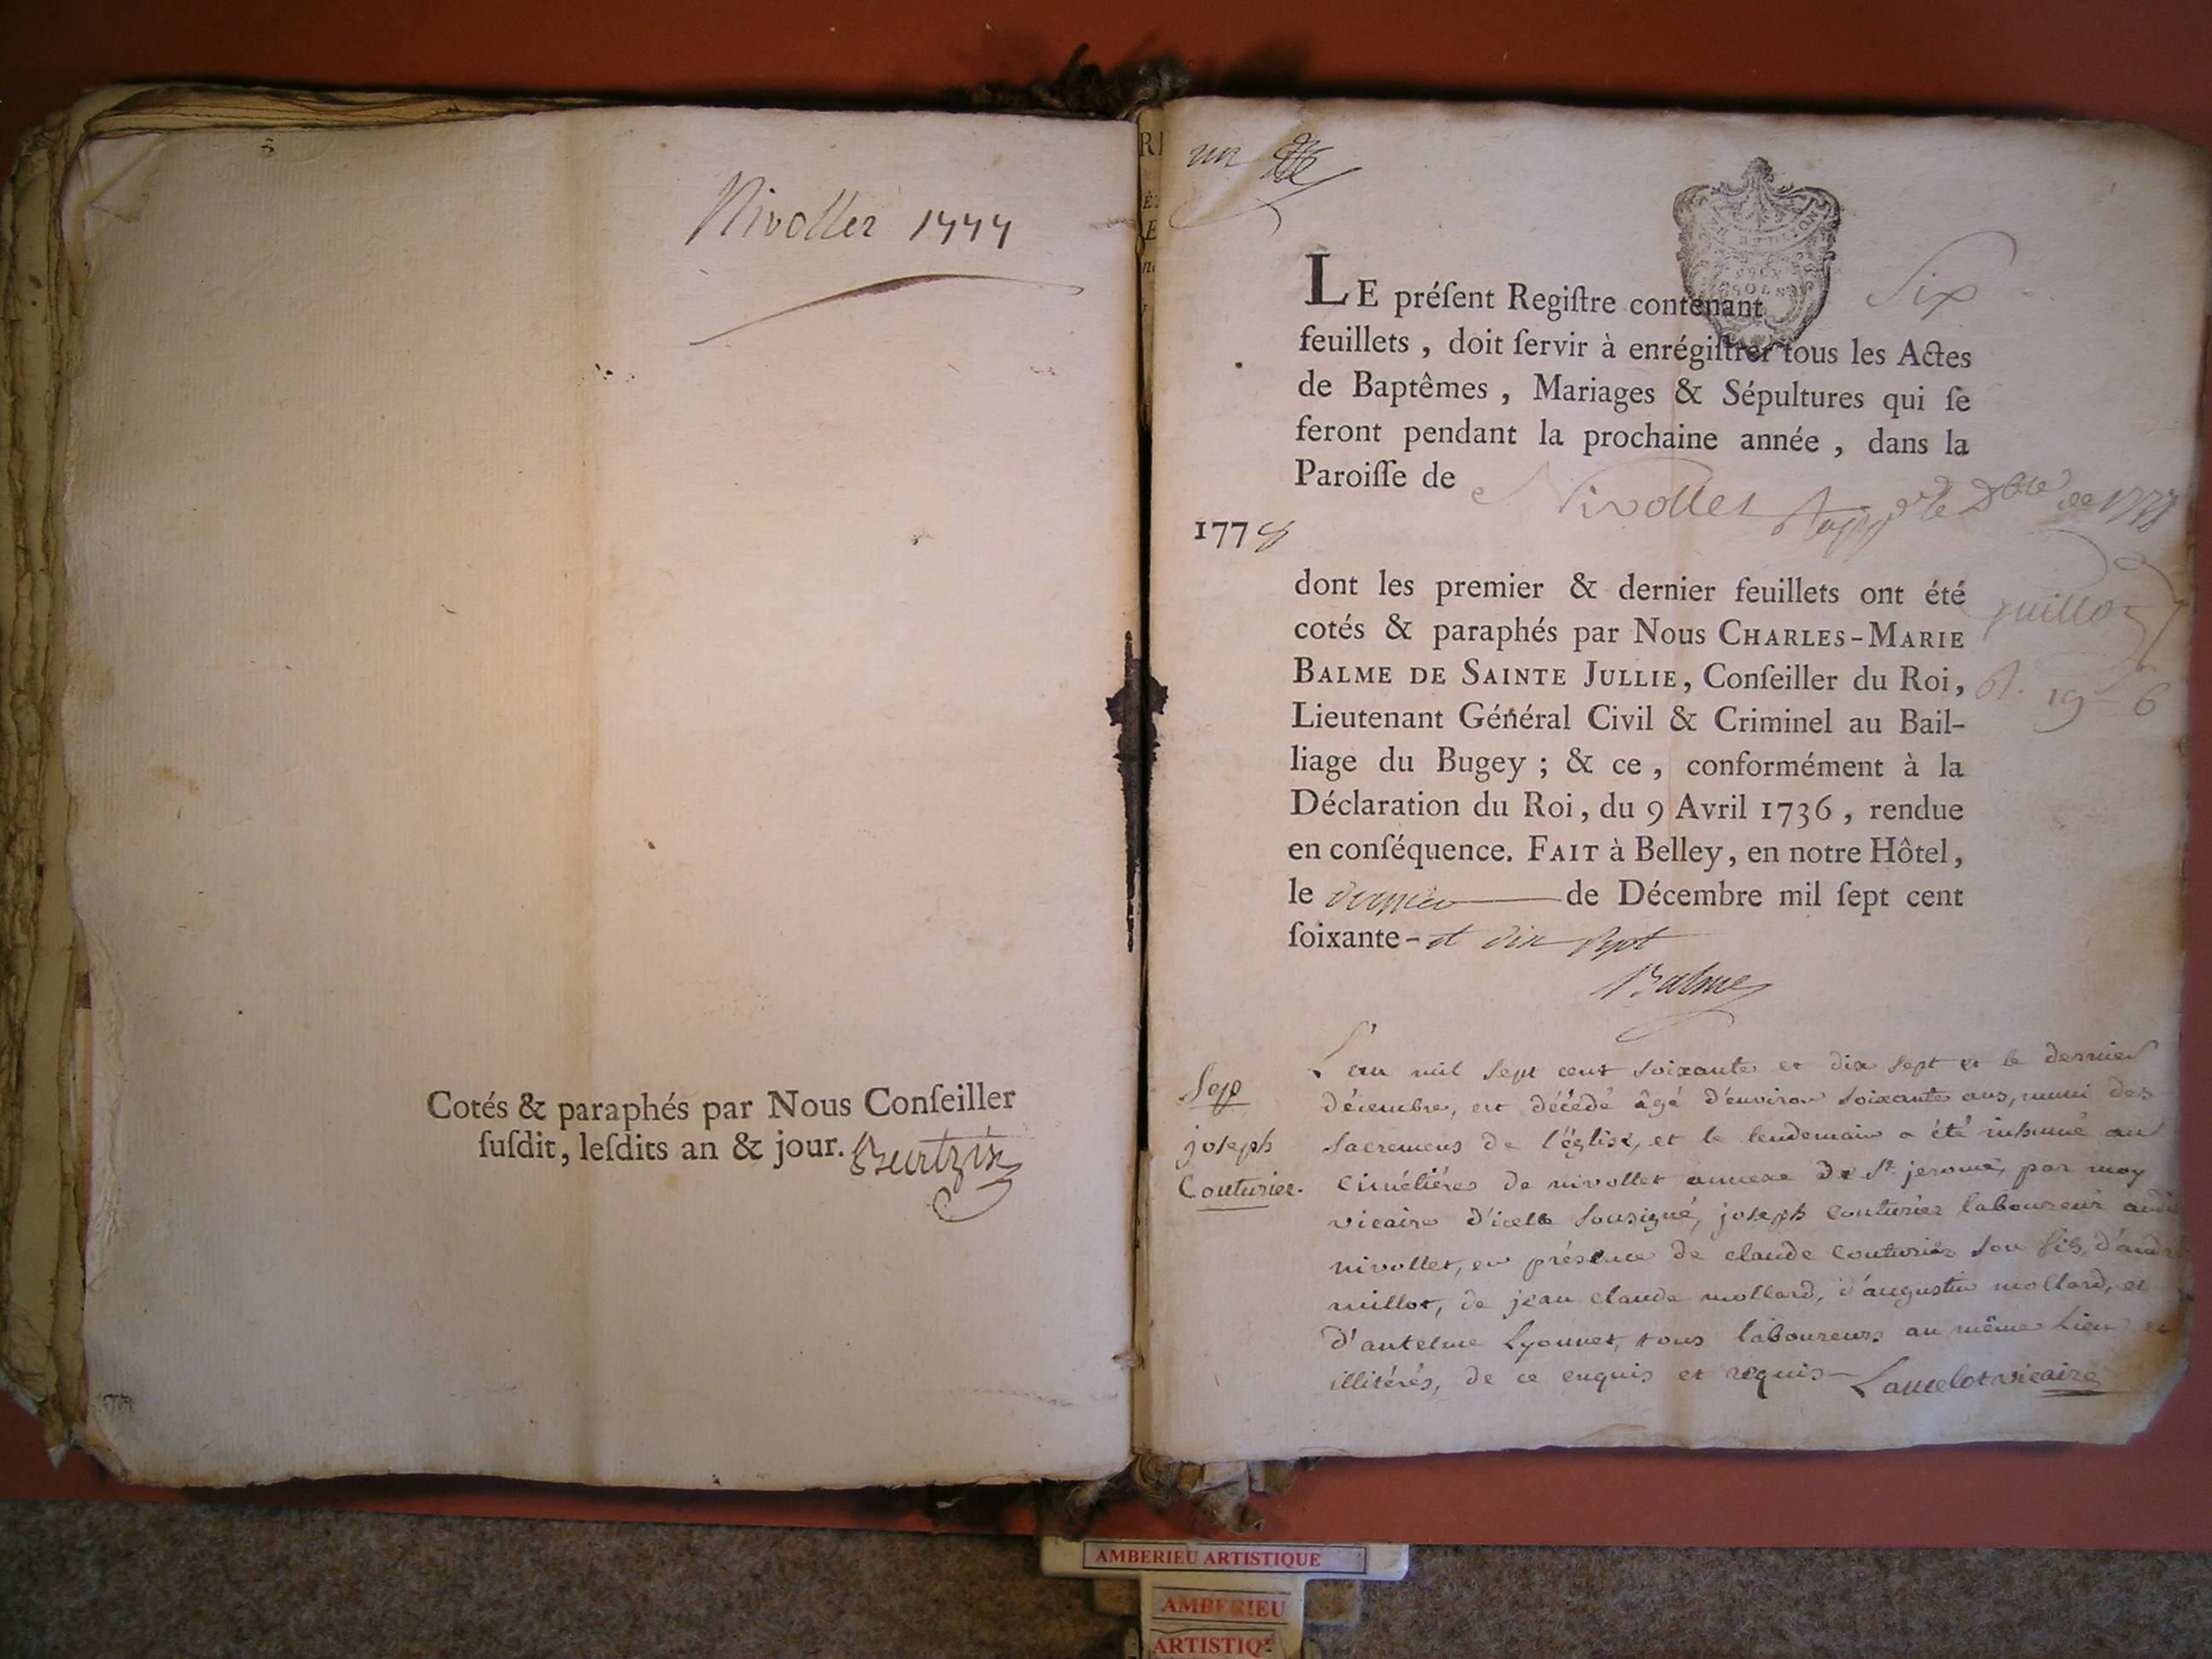 Nivollet 1777
Cotés & paraphés par Nous Conſeiller
ſuſdit, leſdits an & jour.
un
Six
LE préſent Regiſtre contenant
feuillets, doit ſervir à enrégiſtrer tous les Actes
de Baptêmes, Mariages & Sépultures qui ſe
feront pendant la prochaine année, dans la
Paroiſſe de Nivollet
1778
dont les premier & dernier feuillets ont été
cotés & paraphés par Nous CHARLES-MARIE
BALME DE SAINTE JULLIE, Conſeiller du Roi,
Lieutenant Général Civil & Criminel au Bail-
liage du Bugey; & ce, conformément à la
Déclaration du Roi, du 9 Avril 1736, rendue
en conſéquence. FAIT à Belley, en notre Hôtel,
le dernier de Décembre mil ſept cent
ſoixante-et dix sept
Balme
Sep
joseph
Couturier.
L'an mil sept cent soixante et dix sept et le dernier
décembre, est décédé âgé d'environ soixante ans, muni des
sacremens de l'église, et le lendemain a été inhumé au
cimétiére de nivollet annexe de St. jerome, par moy
vicaire d'icelle sousigné, joseph couturier laboureur audit
nivollet, en présence de claude couturier son fils, d'andré
millot, de jean claude mollard, d'augustin mollard, et
d'antelme Lyonnet, tous laboureurs au même Lieu et
illitérés, de ce enquis et requis Lancelot vicaire
AMBERIEU ARTISTIQUE
AMBERIEU
ARTISTIQUE